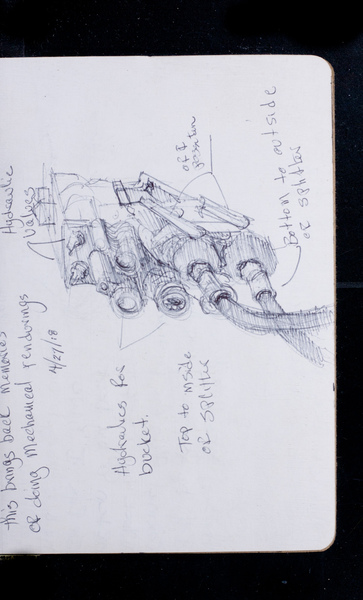 this brings back memories
of doing Mechanical renderings
4/27/18
Hydraulic
Valves
Hydraulics for
bucket.
Top to inside
of splitter
Bottom to outside
of splitter